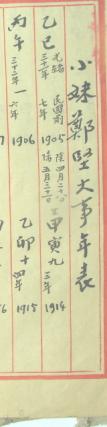 小妹鄭堅大事年表
乙巳 光緒三十一年 民國前七年 1905 陰四月二十八 陽五月三十一
甲寅 九 三年 1914
丙午 三十二年 一 六年 1906
乙卯 十 四年 1915